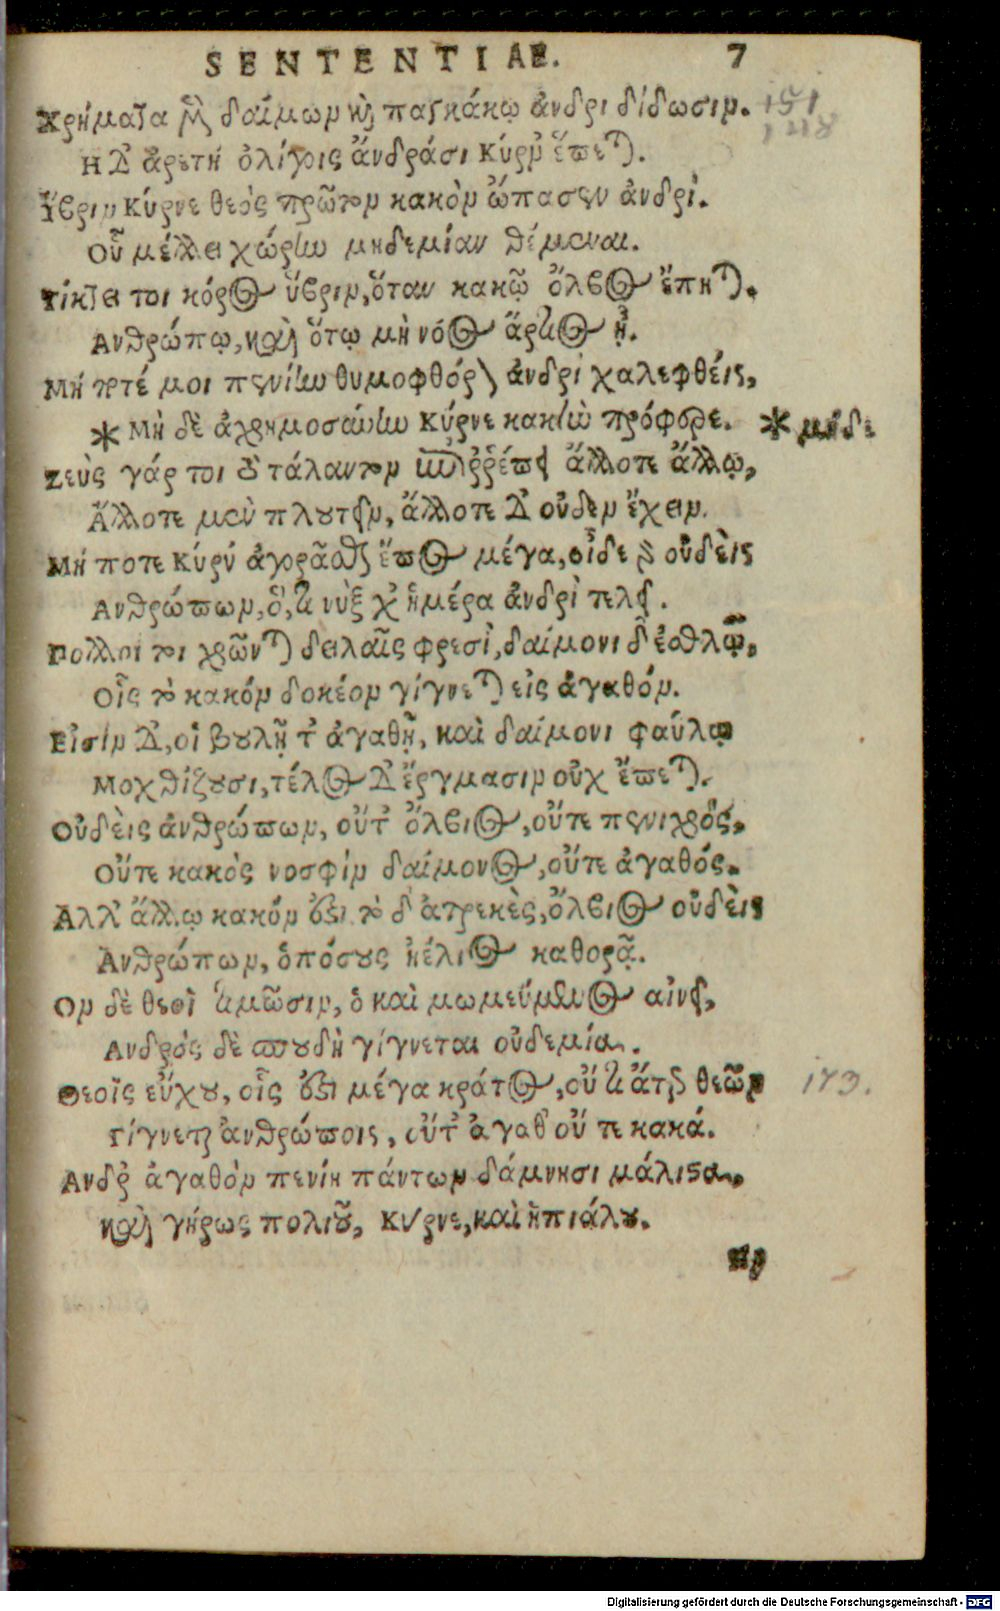 SENTENTIAE. 7
Χρήματα μὲν δαίμων καὶ παγκάκῳ ἀνδρὶ δίδωσιν. 151
Η δ' ἀρετὴ ὀλίγοις ἄνδράσι Κύρν' ἕπεται.
Ὕβριν Κύρνε θεὸς πρῶτον κακὸν ὤπασεν ἀνδρὶ.
Οὗ μέλλει χώρην μηδεμίαν θέμεναι.
Τίκτει τοι κόρος ὕβριν, ὅταν κακῷ ὄλβος ἕπηται.
Ανθρώπῳ, καὶ ὅτῳ μὴ νόος ἄρτιος ᾖ.
Μή ποτέ μοι πενίην θυμοφθόρον ἀνδρὶ χαλεφθείς,
* Μὴ δὲ ἀχρημοσύνην Κύρνε κακὴν πρόφερε. * μήδε
Ζεὺς γάρ τοι τὸ τάλαντον ἐπιῤῥέπει ἄλλοτε ἄλλῳ,
Ἄλλοτε μὲν πλουτεῖν, ἄλλοτε δ' οὐδὲν ἔχειν.
Μή ποτε Κύρν' ἀγορᾶσθαι ἔπος μέγα, οἶδε γὰρ οὐδεὶς
Ανθρώπων, ὅ, τι νὺξ χ' ἡμέρα ἀνδρὶ τελεῖ.
Πολλοί τοι χρῶνται δειλαῖς φρεσὶ, δαίμονι δ' ἐσθλῷ,
Οἷς τὸ κακόν δοκέον γίγνεται εἰς ἀγαθόν.
Εἰσὶν δ', οἳ βουλῇ τ' ἀγαθῇ, καὶ δαίμονι φαύλῳ
Μοχθίζουσι, τέλος δ' ἔργμασιν οὐχ ἕπεται.
Οὐδεὶς ἀνθρώπων, οὔτ' ὄλβιος, οὔτε πενιχρὸς,
Οὔτε κακὸς νοσφὶν δαίμονος, οὔτε ἀγαθός.
Ἀλλ' ἄλλῳ κακόν ἐστι τὸ δ' ἀτρεκὲς, ὄλβιος οὐδεὶς
Ἀνθρώπων, ὁπόσους ἠέλιος καθορᾷ.
Ον δὲ θεοὶ τιμῶσιν, ὁ καὶ μωμεύμενος αἰνεῖ,
Ανδρὸς δὲ σπουδὴ γίγνεται οὐδεμία.
Θεοῖς εὔχου, οἷς ἐστι μέγα κράτος, οὔ τι ἄτερ θεῶν 173.
Γίγνεται ἀνθρώποις, οὔτ' ἀγαθ' οὔ τε κακά.
Ανδρ' ἀγαθὸν πενίη πάντων δάμνησι μάλιστα,
καὶ γήρως πολιοῦ, Κύρνε, καὶ ἠπιάλου.
Ην
Digitalisierung gefördert durch die Deutsche Forschungsgemeinschaft - DFG